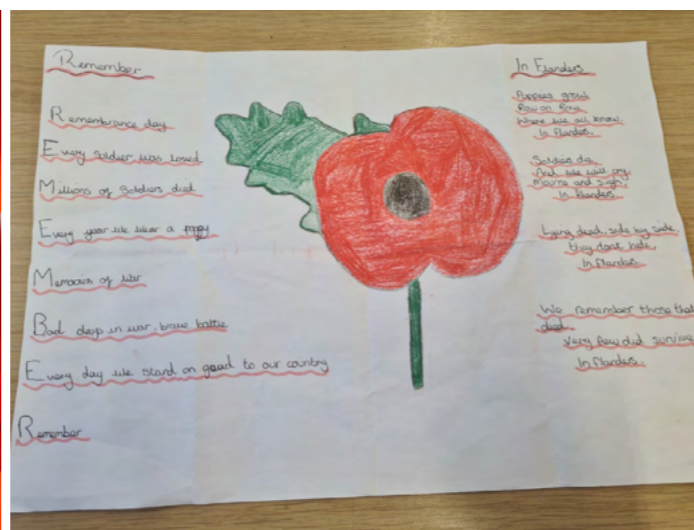 Remember
Remembrance day
Every soldier was loved
Millions of soldiers died
Every year we wear a poppy
Memories of war
Bad days in war, brave battle
Every day we stand on guard to our country
Remember
In Flanders
Poppies grow
Row on Row
Where we all know
In Flanders.
Soldiers die
And we will cry
Mourne and sigh,
In Flanders
Lying dead, side by side,
they dont hide,
In Flanders.
We remember those that
died.
Very few did survive
In Flanders.